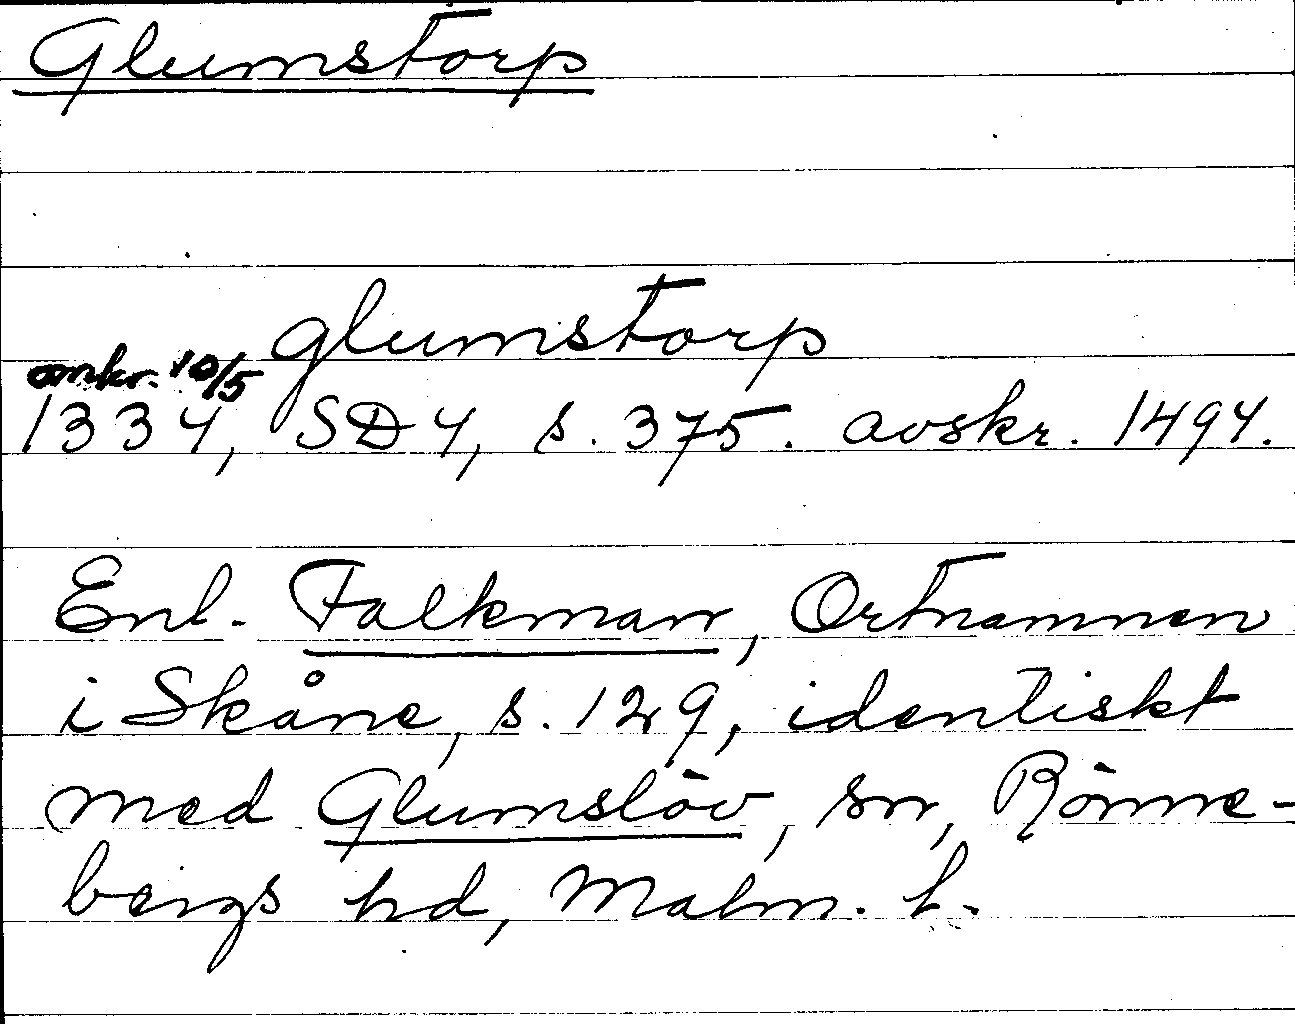 Glumstorp
glumstorp
omkr. 10/5
1334, SD 4, s. 375. avskr. 1494.
Enl. Falkman, Ortnamnen
i Skåne, s. 129, identiskt
med Glumslöv, sn, Rönne-
bergs hd, Malm. l.